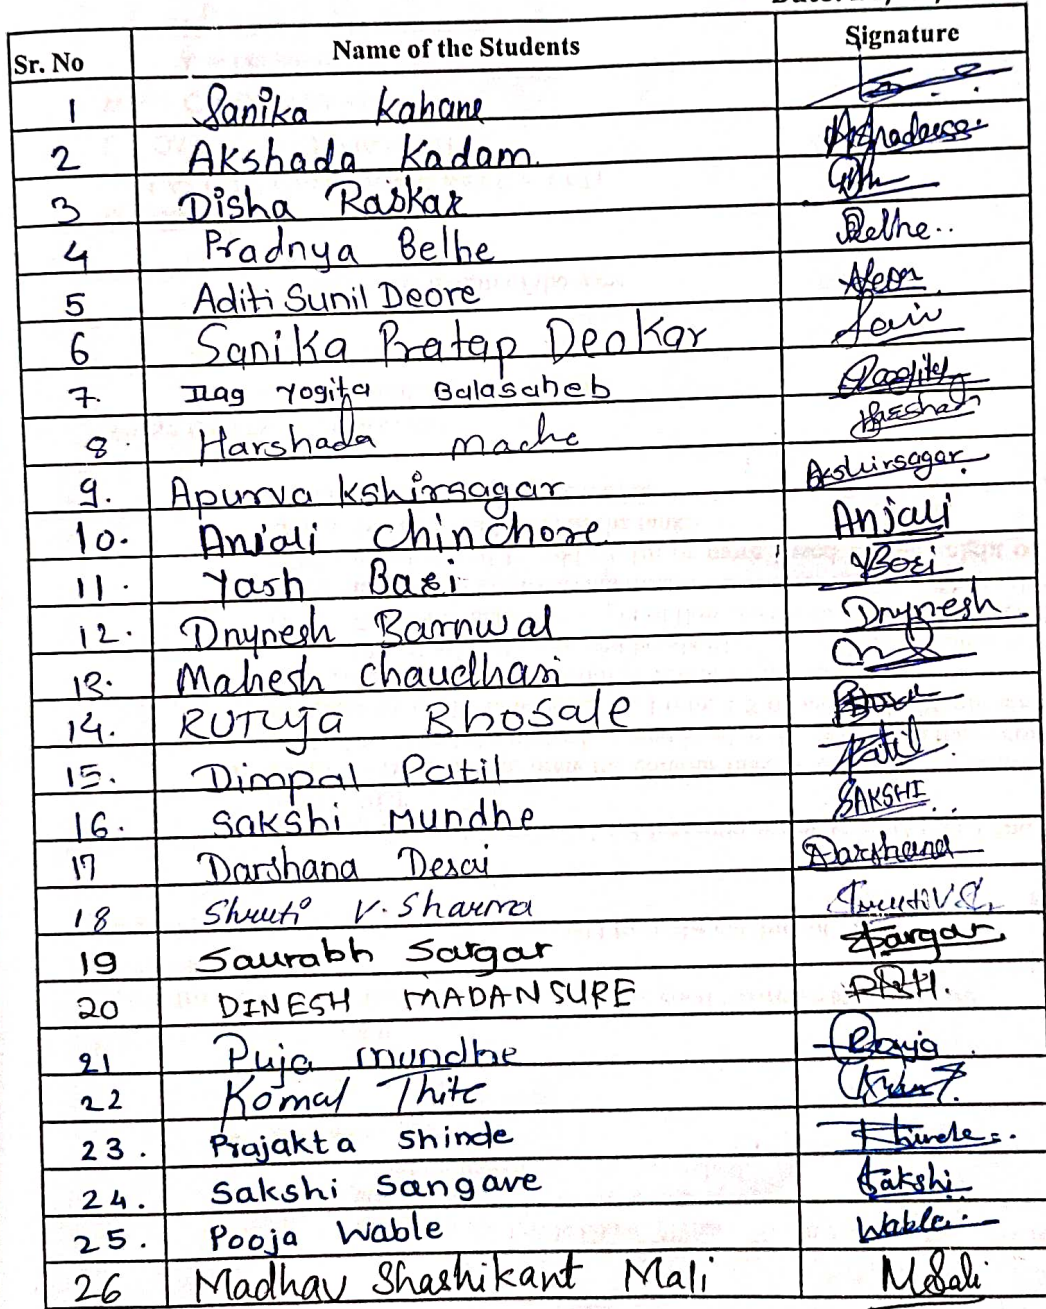 Sr. No Name of the Students Signature
1 Sanika Kahane
2 Akshada Kadam.
3 Disha Raskar
4 Pradnya Belhe Belhe..
5 Aditi Sunil Deore
6 Sanika Pratap Deokar
7. Ilag Yogita Balasaheb
8. Harshada Mache
9. Apurva Kshirsagar Akshirsagar.
10. Anjali Chinchore Anjali
11. Yash Bari
12. Dnynesh Barnwal Dnynesh
13. Mahesh Chaudhari
14. RUTUJA Bhosale
15. Dimpal Patil Patil
16. Sakshi Mundhe SAKSHI
17 Darshana Desai Darshana
18 Shruti V. Sharma
19 Saurabh Sargar Sargar
20 DINESH MADANSURE
21 Puja mundhe
22 Komal Thite
23. Prajakta Shinde Shinde
24. Sakshi Sangave Sakshi
25. Pooja Wable Wable
26 Madhav Shashikant Mali